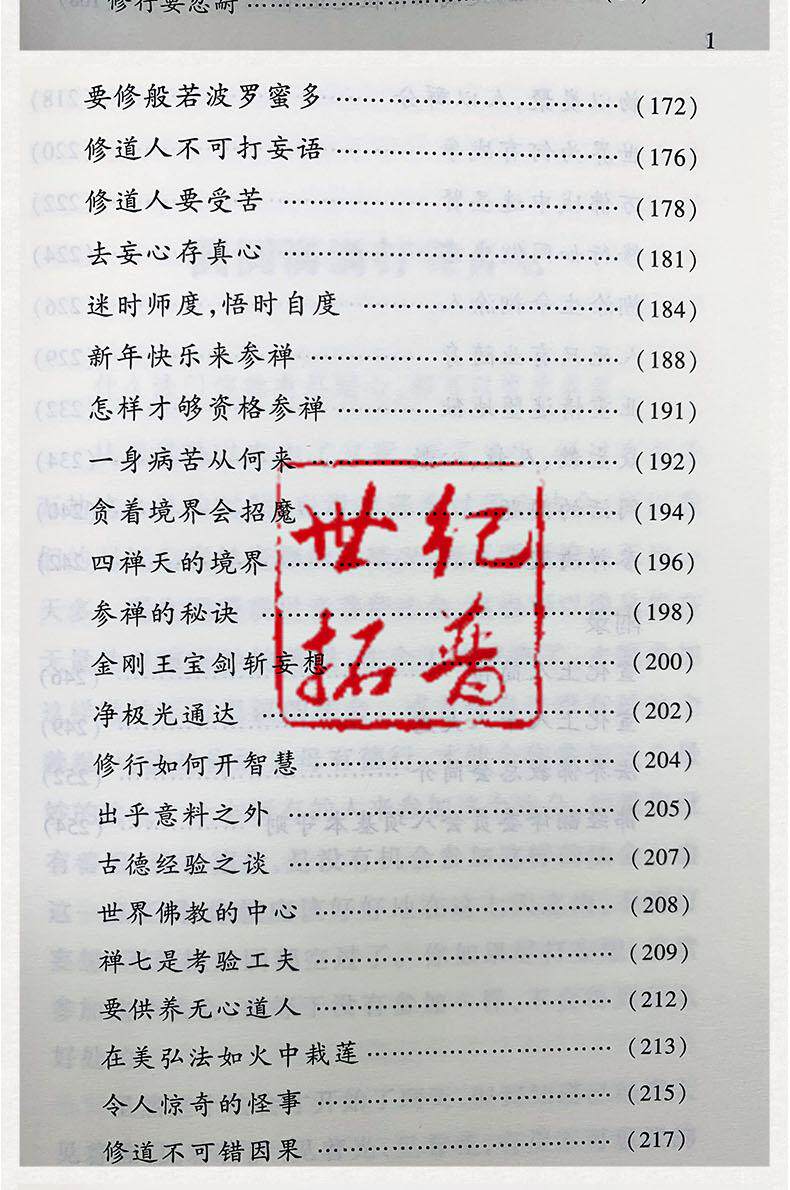 修行要忍耐 ……………………………
1
要修般若波罗蜜多 …………………………… (172)
修道人不可打妄语 …………………………… (176)
修道人要受苦 …………………………… (178)
去妄心存真心 …………………………… (181)
迷时师度,悟时自度 …………………………… (184)
新年快乐来参禅 …………………………… (188)
怎样才够资格参禅 …………………………… (191)
一身病苦从何来 …………………………… (192)
贪着境界会招魔 …………………………… (194)
四禅天的境界 …………………………… (196)
参禅的秘诀 …………………………… (198)
金刚王宝剑斩妄想 …………………………… (200)
净极光通达 …………………………… (202)
修行如何开智慧 …………………………… (204)
出乎意料之外 …………………………… (205)
古德经验之谈 …………………………… (207)
世界佛教的中心 …………………………… (208)
禅七是考验工夫 …………………………… (209)
要供养无心道人 …………………………… (212)
在美弘法如火中栽莲 …………………………… (213)
令人惊奇的怪事 …………………………… (215)
修道不可错因果 …………………………… (217)
世纪
拓普